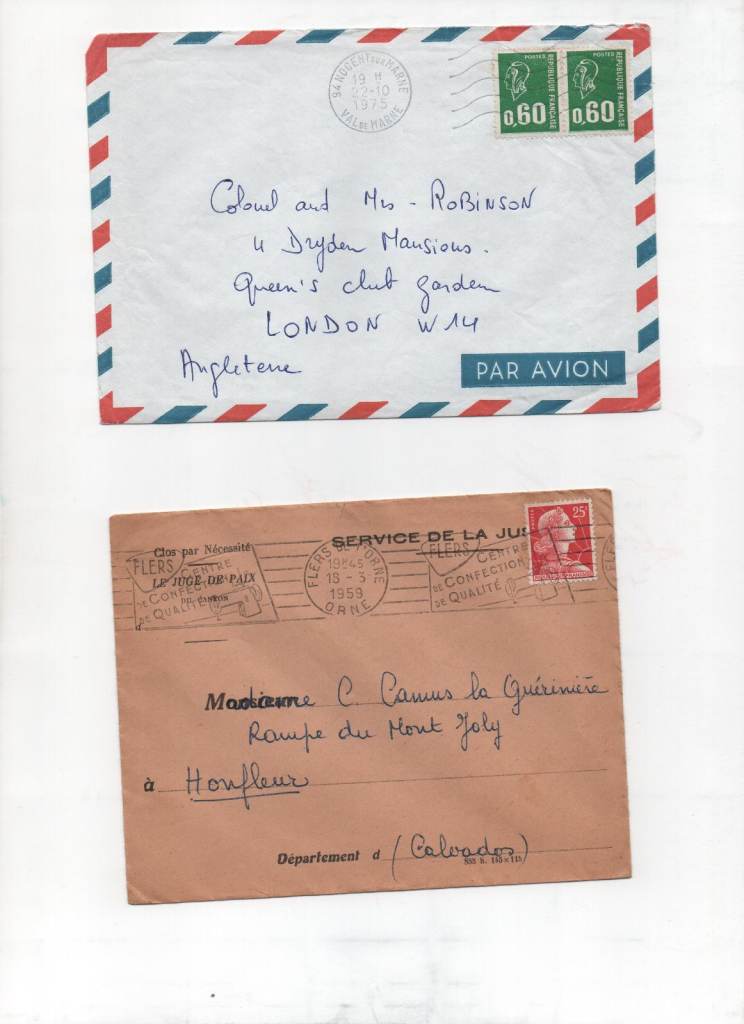 94 NOGENT SUR MARNE
19 H
22-10
1975
VAL DE MARNE
POSTES
REPUBLIQUE FRANÇAISE
0,60
POSTES
REPUBLIQUE FRANÇAISE
0,60
Colonel and Mrs - ROBINSON
4 Dryden Mansions.
Queen's club garden
LONDON W14
Angleterre
PAR AVION
Clos par Nécessité
LE JUGE DE PAIX
DU CANTON
d
SERVICE DE LA JUS
FLERS
CENTRE
DE CONFECTION
DE QUALITÉ
FLERS DE L'ORNE
19H45
18-3
1959
ORNE
FLERS
CENTRE
DE CONFECTION
DE QUALITÉ
25F
FLERS
Madame C. Camus la Guérinière
Rampe du Mont Joly
à Honfleur
Département d (Calvados)